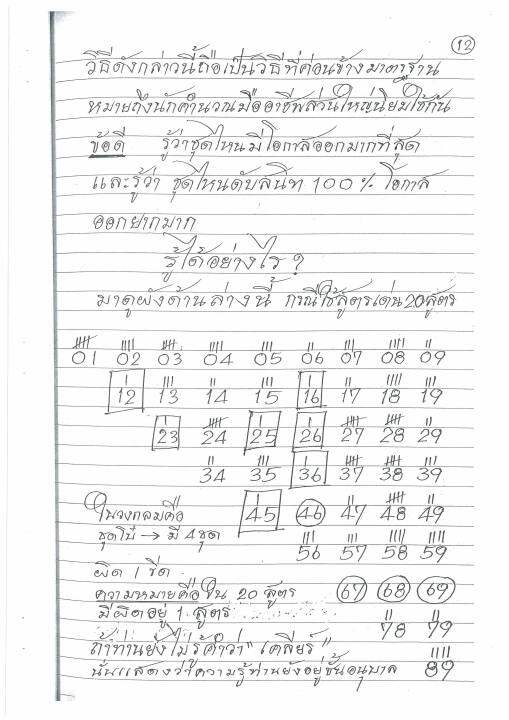 12
วิธีดังกล่าวนี้ถือเป็นวิธีที่ค่อนข้างมาตรฐาน
หมายถึงนักคำนวณมืออาชีพส่วนใหญ่นิยมใช้กัน
ข้อดี รู้ว่าชุดไหนมีโอกาสออกมากที่สุด
และรู้ว่า ชุดไหนดับสนิท 100% โอกาส
ออกยากมาก
รู้ได้อย่างไร ?
มาดูผังด้านล่างนี้ กรณีใช้สูตรเด่น 20 สูตร
01 02 03 04 05 06 07 08 09
12 13 14 15 16 17 18 19
23 24 25 26 27 28 29
34 35 36 37 38 39
ในวงกลมคือ 45 46 47 48 49
ชุดโบ๋ → มี 4 ชุด 56 57 58 59
ผิด 1 ขีด
ความหมายคือใน 20 สูตร 67 68 69
มีผิดอยู่ 1 สูตร 78 79
ถ้าท่านยังไม่รู้คำว่า "เคลียร์"
นั่นแสดงว่าความรู้ท่านยังอยู่ชั้นอนุบาล 89